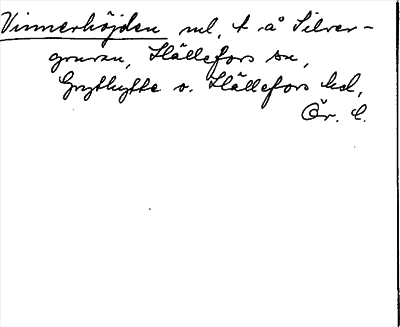 Vinnerhöjden ml, t å Silver-
gruvan, Hällefors sn,
Grythytte o. Hällefors hd,
Ör. l.